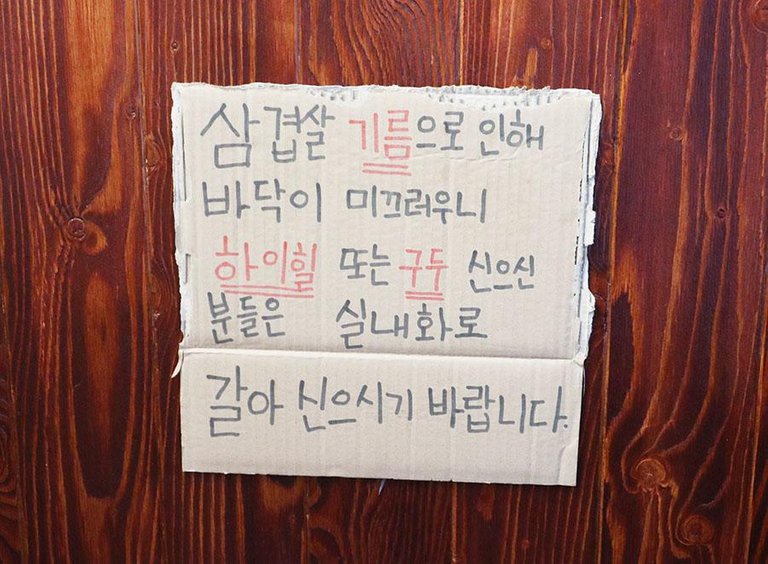 삼겹살 기름으로 인해
바닥이 미끄러우니
하이힐 또는 구두 신으신
분들은 실내화로
갈아 신으시기 바랍니다.